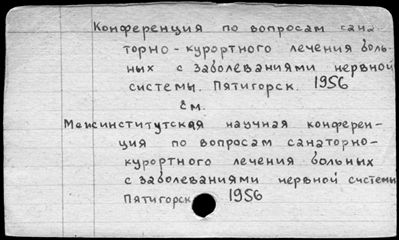 Конференция по вопросам сана-
торно-курортного лечения боль-
ных с заболеваниями нервной
системы. Пятигорск. 1956
См.
Межинститутская научная конферен-
ция по вопросам санаторно-
курортного лечения больных
с заболеваниями нервной системы
Пятигорск 1956